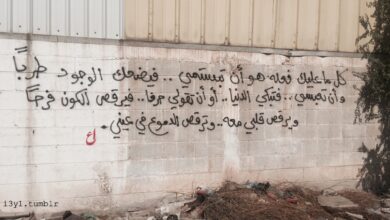 كل ما عليك فعله هو أن تبتسمي .. فيضحك الوجود طرباً
وأن تعبسي .. فتبكي الدنيا .. أو أن تقولي حرفا .. فيرقص الكون فرحاً
ويرقص قلبي معه .. وترقص الدموع في عيني .
ع
i3yl.tumblr